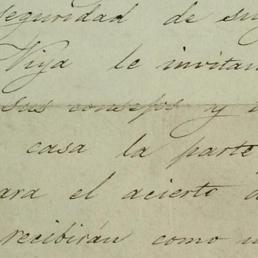 seguridad de su
Viya le invitan
sus consejos y
casa la parte
ara el acierto d
recibirán como u